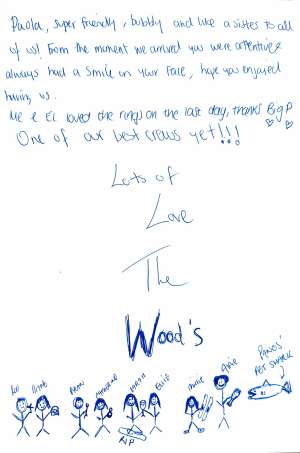 Paola, super friendly, bubbly and like a sister to all
of us! From the moment we arrived you were attentive &
always had a smile on your face, hope you enjoyed
having us.
Me & El loved the rings on the last day, thanks Big P
One of our best crews yet!!!
Lots of
Love
The
Wood's
PET SHARK